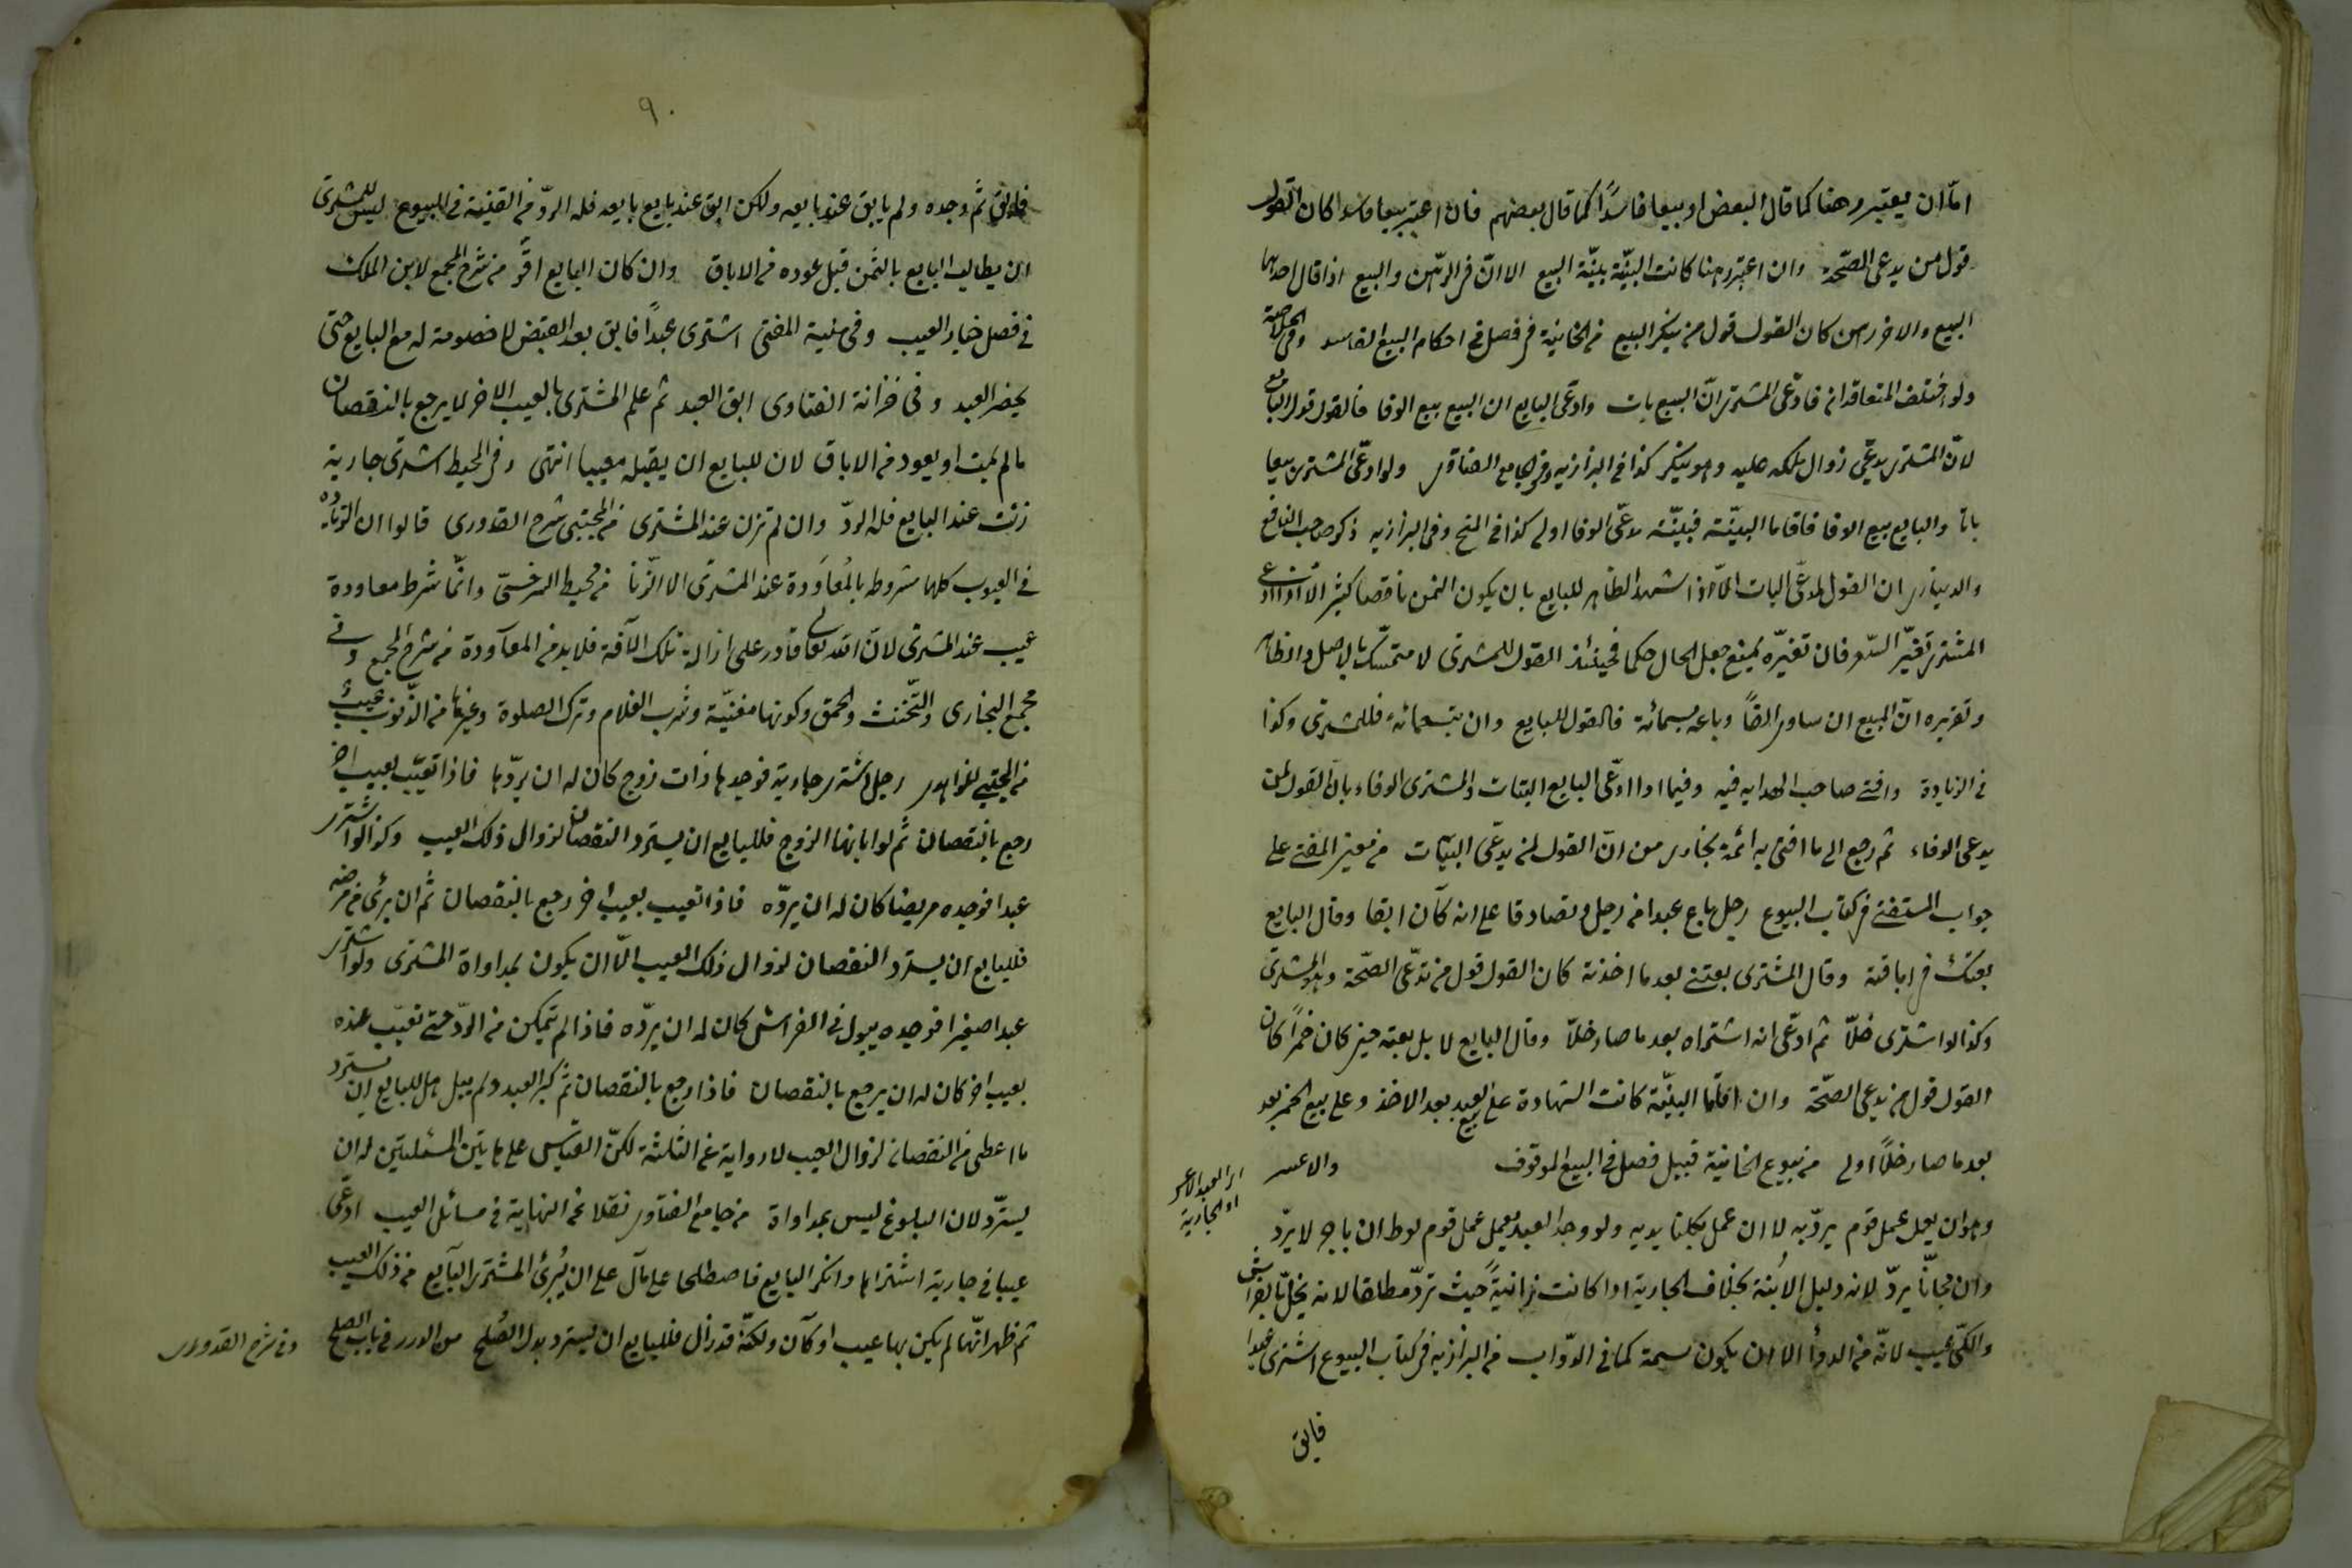 امّا ان يعتبر رهنا كما قال البعض او بيعا فاسدًا كما قال بعضهم فان اعتبر بيعا فاسدا كان القول
قول من يدعى الصّحة وان اعتبر رهنا كانت البيّنة بيّنة البيع الا انّ فى الرّهن والبيع اذا قال احدهما
البيع والاخر رهن كان القول قول من ينكر البيع من الخانية فى فصل فى احكام البيع الفاسد وفى الخلاصة
ولو اختلف المتعاقدان فادّعى المشترى انّ البيع بات وادّعى البايع ان البيع بيع الوفا فالقول قول البايع
لانّ المشترى يدعّى زوال ملكه عليه وهو ينكر كذا فى البزازيه وفى جامع الفتاوى ولو ادعّى المشترى بيعا
باتا والبايع بيع الوفا فاقاما البيّنة فبيّنة مدعّى الوفا اولى كذا فى المنح وفى البزازيه ذكر صاحب المنافع
والدينارى ان القول لمدعّى البات الّا اذا شهد الظاهر للبايع بان يكون الثمن ناقصا كثيرا الّا اذا ادعى
المشترى تغيّر السّعر فان تغيّره يمنع جعل الحال حكما فحينئذ القول للمشترى لا متمسّك بالاصل والظاهر
وتقريره انّ المبيع ان ساوى الفًا وباعه بخمسمائة فالقول للبايع وان بتسعمائة فللمشترى وكذا
فى الزيادة وافتى صاحب الهدايه فيه وفيما اذا ادّعى البايع البتات والمشترى الوفاء بانّ القول لمن
يدعى الوفاء ثم رجع الى ما افتى به ائمة بخارى من انّ القول لمن يدعّى البتات من معين المفتى على
جواب المستفتى فى كتاب البيوع رجل باع عبدا من رجل وتصادقا على انه كان ابقا وقال البايع
بعتك فى اباقته وقال المشترى بعتنى بعد ما اخذته كان القول قول من يدّعى الصّحة وهو المشترى
وكذا لو اشترى خلّا ثم ادعّى انه اشتراه بعد ما صار خلّا وقال البايع لا بل بعته حين كان خمرًا كان
القول قول من يدعى الصّحة وان اقاما البيّنة كانت الشهادة على بيع العبد بعد الاخذ وعلى بيع الخمر بعد
بعد ما صار خلًا اولى من بيوع الخانية قبيل فصل فى البيع الموقوف والاعسر
اى العبد الاعسر
او الجارية
وهو ان يعمل عمل قوم يردّ به لا ان عمل بكلتا يديه ولو وجد العبد يعمل عمل قوم لوط ان باجر لا يردّ
وان مجانًا يردّ لانه دليل الابنة بخلاف الجارية اذا كانت زانيةً حيث تردّ مطلقا لانه يخلّ بالفراش
والكىّ عيب لانّه من الدوأ الا ان يكون سمة كما فى الدوّاب من البزازيه فى كتاب البيوع اشترى عبدا
فابق
٩٠
فابق ثم وجده ولم يابق عند بايعه ولكن ابق عند بايع بايعه فله الردّ من القنية فى البيوع ليس للمشترى
ان يطالب البايع بالثمن قبل عوده من الاباق وان كان البايع اقرّ من شرح المجمع لابن الملك
فى فصل خيار العيب وفى منية المفتى اشترى عبدًا فابق بعد القبض لا خصومة له مع البايع حتى
يحضر العبد وفى خزانة الفتاوى ابق العبد ثم علم المشترى بالعيب الاخر لا يرجع بالنقصان
مالم يمت او يعود من الاباق لان للبايع ان يقبله معيبا انتهى وفى المحيط اشترى جارية
زنت عند البايع فله الردّ وان لم تزن عند المشترى من المجتبى شرح القدورى قالوا ان الزيادة
فى العيوب كلها مشروطه بالمُعاوَدة عند المشترى الا الزّنا من محيط السرخسىّ وانّما شرط معاودة
عيب عند المشترى لانّ الله تعالى قادر على ازالة تلك الآفة فلا بد من المعآودة من شرح المجمع وفى
مجمع البخارى والتّخنث والحمق وكونها مغنيّة وشرب الغلام وترك الصلوة وغيرها من الذّنوب عيبٌ
من المجتبى للزاهدى رجل اشترى جارية فوجدها ذات زوج كان له ان يردّها فاذا تعيّبت بعيب اخر
رجع بالنقصان ثم لو ابانها الزوج فللبايع ان يسترد النقصان لزوال ذلك العيب وكذا لو اشترى
عبدا فوجده مريضا كان له ان يردّه فاذا تعيب بعيب اخر رجع بالنقصان ثم ان برئ من مرضه
فللبايع ان يسترد النقصان لزوال ذلك العيب الّا ان يكون بمداواة المشترى ولو اشترى
عبدا صغيرا فوجده يبول فى الفراش كان له ان يردّه فاذا لم يتمكن من الردّ حتى تعيّب عنده
بعيب اخر كان له ان يرجع بالنقصان فاذا رجع بالنقصان ثم كبر العبد ولم يبل هل للبايع ان يسترد
ما اعطى من النقصان لزوال العيب لا رواية عن الثلثة لكنّ القياس على هاتين المسئلتين له ان
يستردّ لان البلوغ ليس بمداواة من جامع الفتاوى نقلا عن النهاية فى مسائل العيب ادعّى
عيبا فى جارية اشتراها وانكر البايع فاصطلحا على مال على ان يُبرئ المشترى البآيع من ذلك العيب
ثم ظهر انّها لم يكن بها عيب او كان ولكنّه قد زال فللبايع ان يسترد بدل الصُلح من الدرر فى باب الصلح وفى شرح القدورى